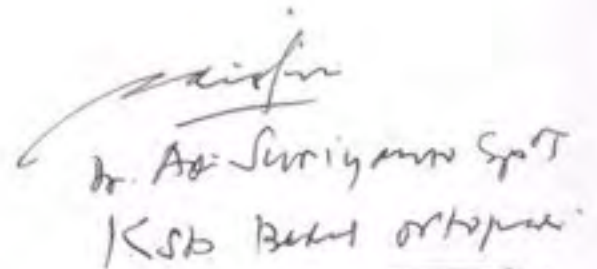 dr. Adi Suriyanto SpOT
KSB Bedah ortopedi